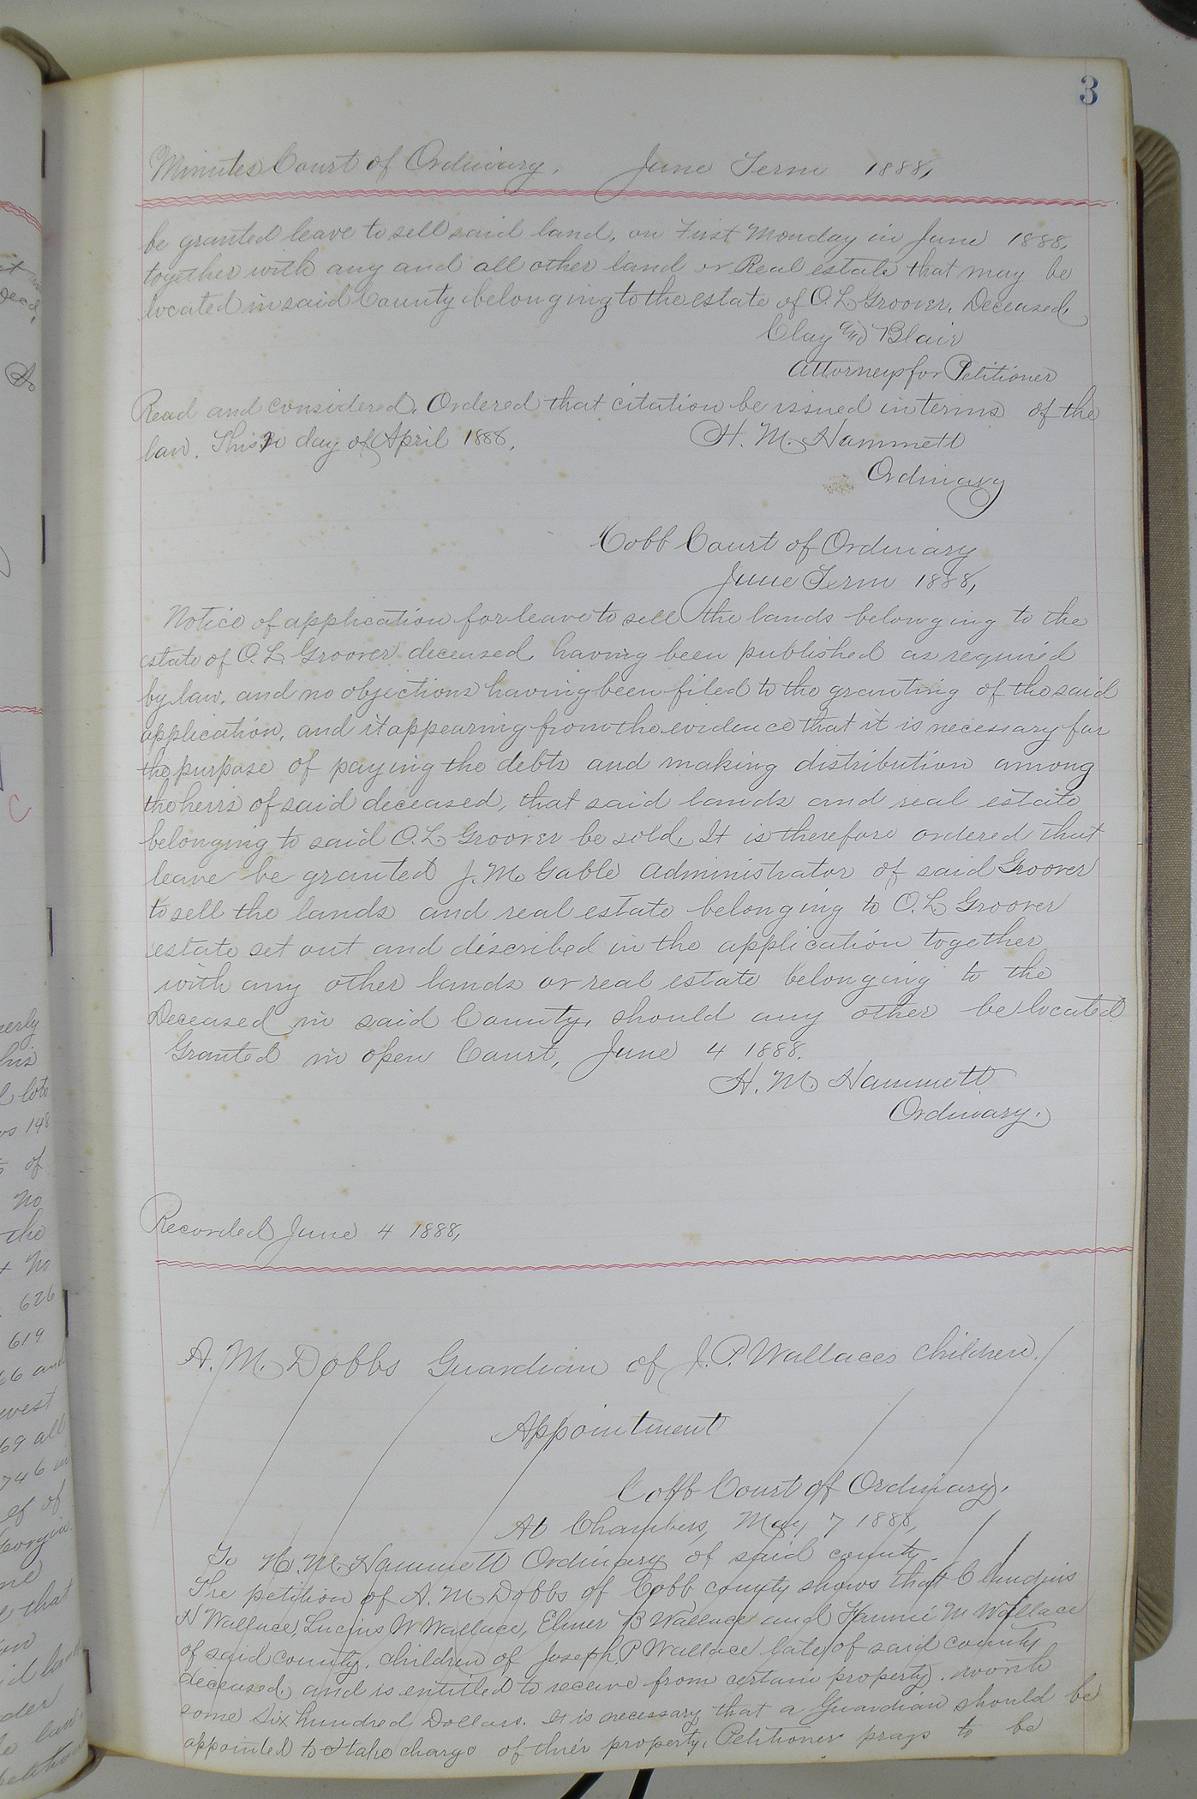 3
Minutes Court of Ordinary. June Term 1888,
be granted leave to sell said land, on First Monday in June 1888,
together with any and all other land or Real estate that may be
located in said County belonging to the estate of O. L. Groover, Deceased,
Clay & Blair
Attorneys for Petitioner
Read and considered, Ordered that citation be issued in terms of the
law. This day of April 1888.
H. M. Hammett
Ordinary
Cobb Court of Ordinary
June Term 1888,
Notice of application for leave to sell the lands belonging to the
estate of O. L. Groover deceased, having been published as required
by law, and no objections having been filed to the granting of the said
application, and it appearing from the evidence that it is necessary for
the purpose of paying the debts and making distribution among
the heirs of said deceased, that said lands and real estate
belonging to said O. L. Groover be sold. It is therefore ordered that
leave be granted J. M. Gable administrator of said Groover
to sell the lands and real estate belonging to O. L. Groover
estate set out and discribed in the application together
with any other lands or real estate belonging to the
Deceased in said County, should any other be located
Granted in open Court, June 4 1888.
H. M. Hammett
Ordinary.
Recorded June 4 1888,
A. M. Dobbs Guardian of J. P. Wallaces children.
Appointment
Cobb Court of Ordinary.
At Chambers, May, 7 1888,
To H. M. Hammett Ordinary of said county.
The petition of A. M. Dobbs of Cobb county shows that Claudius
N Wallace, Lucius W Wallace, Elmer B Wallace and Fannie M Wallace
of said county, children of Joseph P Wallace late of said county
deceased, and is entitled to receive from certain property. worth
some six hundred Dollars. It is necessary that a Guardian should be
appointed to take charge of their property, Petitioner prays to be